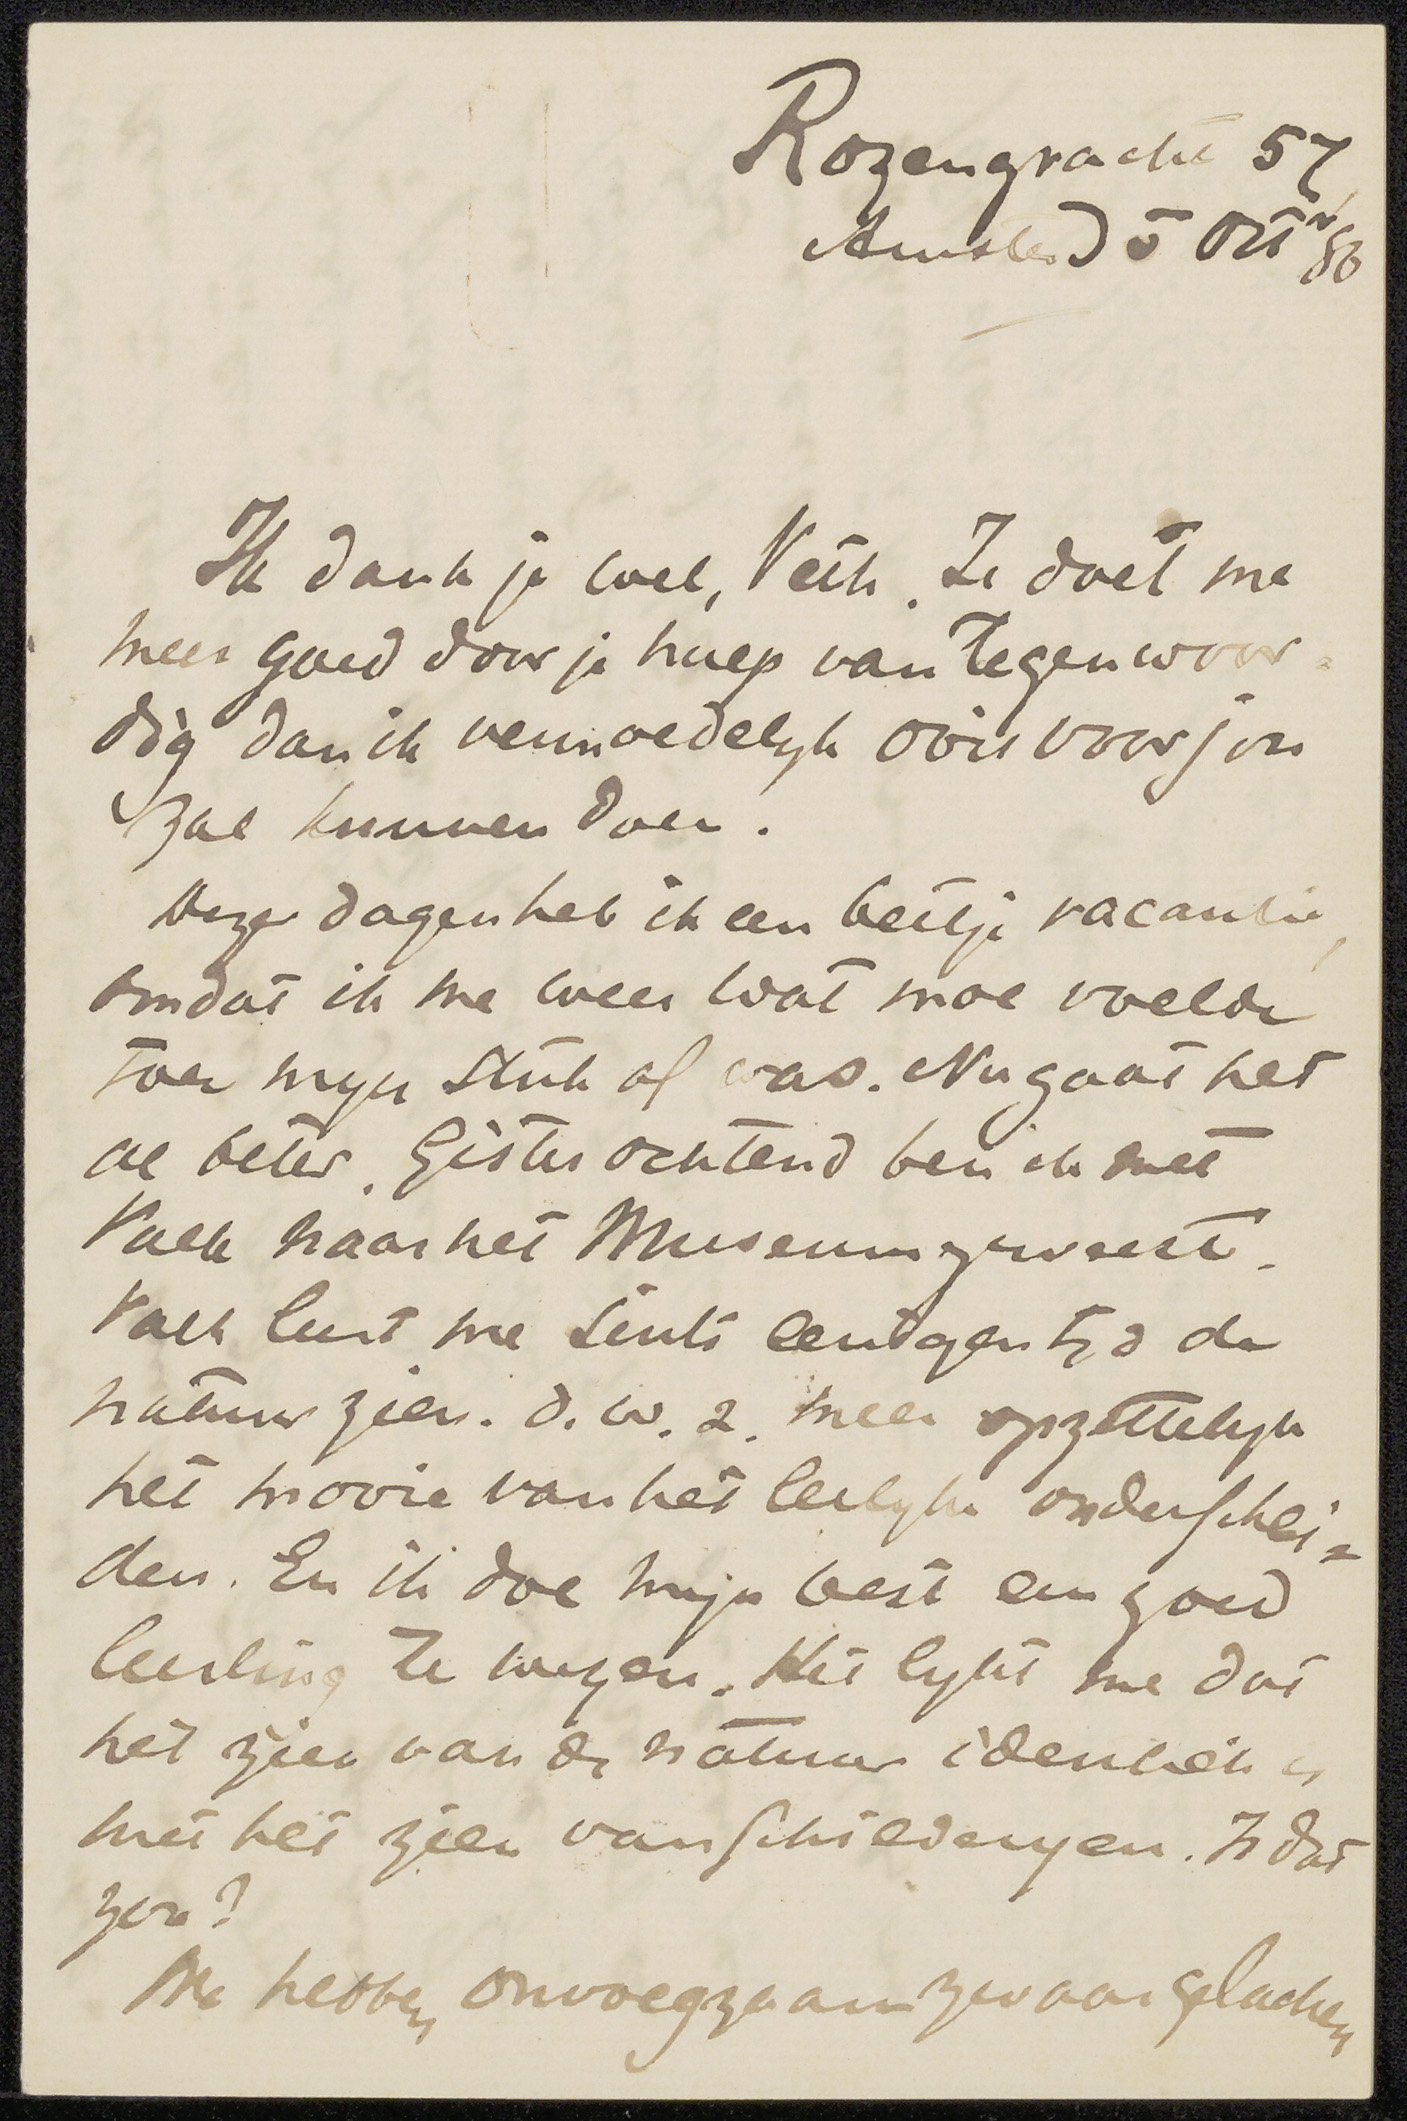 Rozengracht 57,
Amsterd 5 Oct 86
Ik dank je wel, Veth. Je doet me
meer goed door je hulp van tegenwoor-
dig dan ik vermoedelyk ooit voor jou
zal kunnen doen.
Deze dagen heb ik een beetje vacantie,
omdat ik me weer wat moe voelde
toen myn stuk af was. Nu gaat het
al beter. Gister ochtend ben ik met
Valk naar het Museum geweest.
Valk leert me sints eenigen tyd de
natuur zien. d.w.z. meer opzettelyk
het mooie van het leelyke onderschei=
den. En ik doe myn best een goed
leerling te wezen. Het lykt me dat
het zien van de natuur identiek is
met het zien van schilderyen. Is dat
zoo?
We hebben onvoegzaam zwaar gelachen